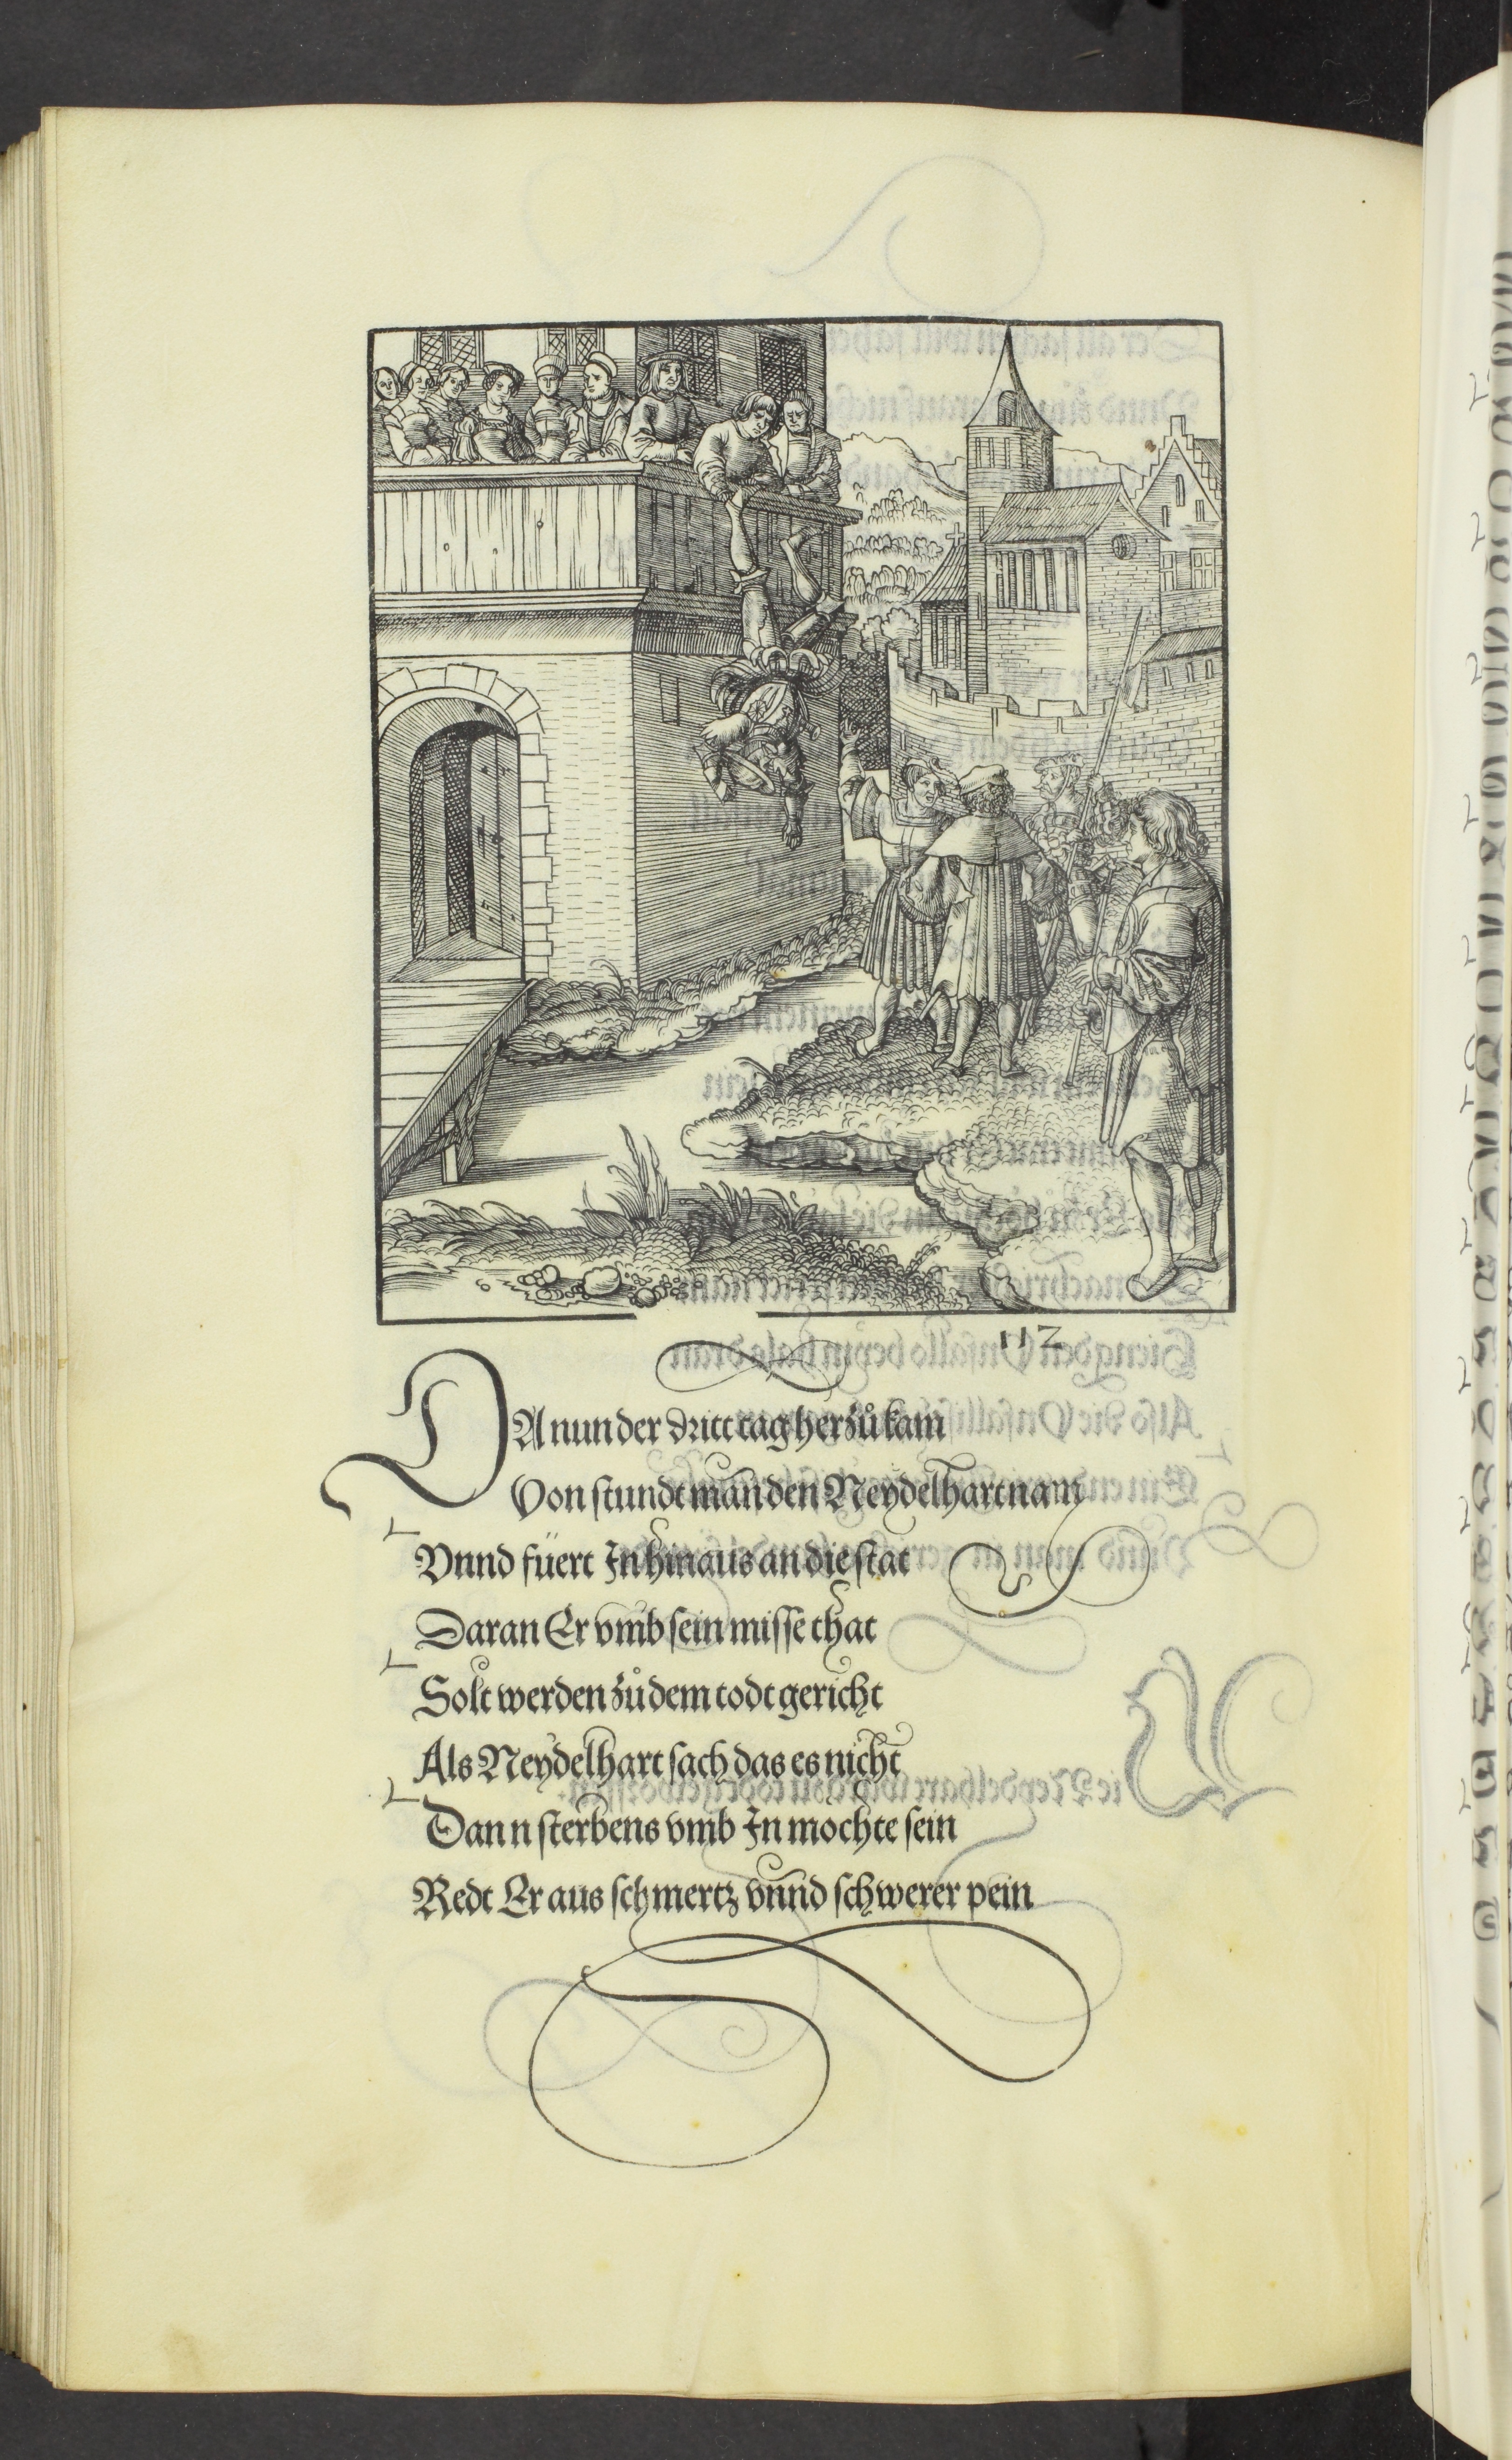 112
DA nun der dritt tag herzů kam
Von stundt man den Neydelhart nam
Vnnd füert In hinaus an die stat
Daran Er vmb sein misse that
Solt werden zů dem todt gericht
Als Neydelhart sach das es nicht
Dann sterbens vmb In mochte sein
Redt Er aus schmertz vnnd schwerer pein